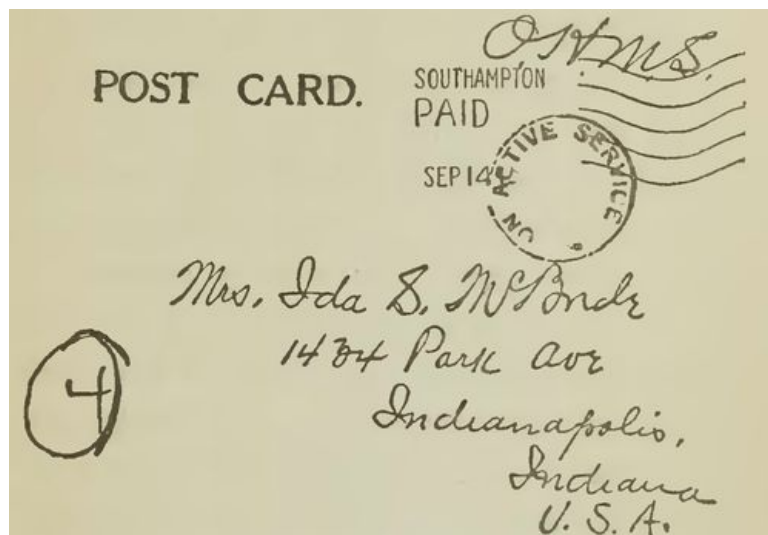 O.H.M.S.
POST CARD.
SOUTHAMPTON
PAID
SEP 14
ON ACTIVE SERVICE
Mrs. Ida S. McBride
1434 Park Ave
Indianapolis,
Indiana
U. S. A.
4